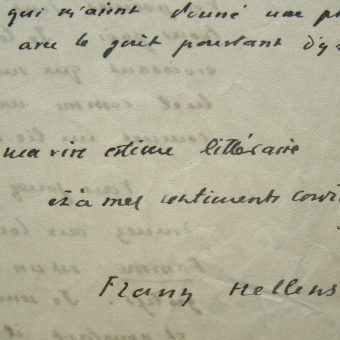 qui m'aient donné une p
avec le goût pourtant d'y
ma vive estime littéraire
et à mes sentiments cordi
Franz Hellens